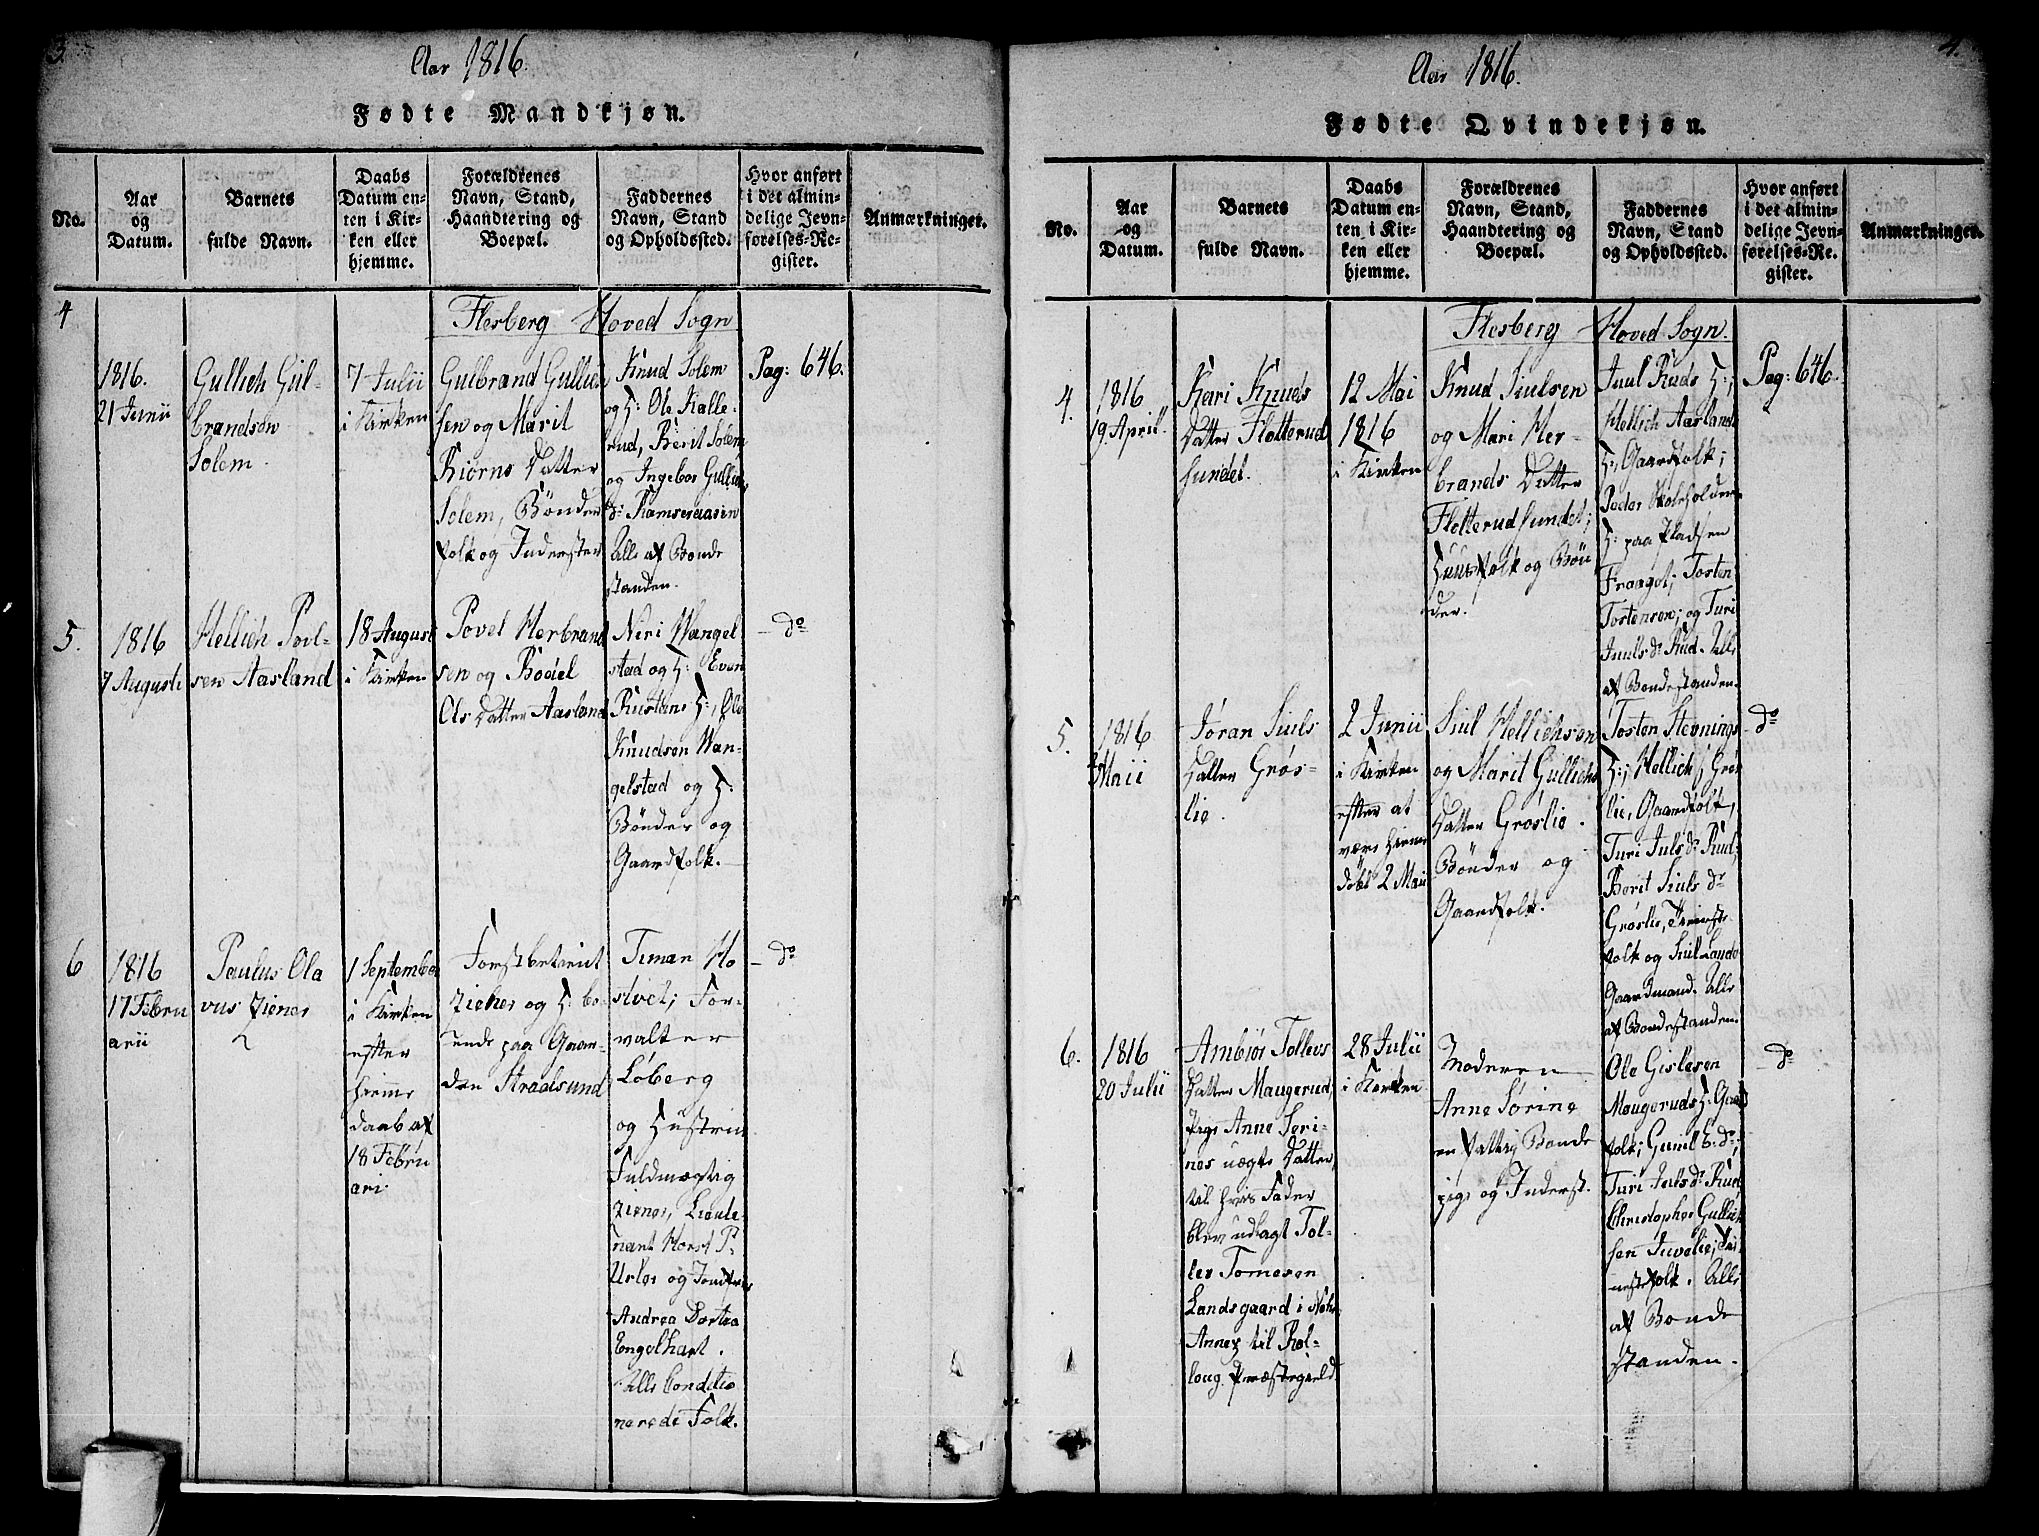 3.
Aar 1816.
Fødte Mandkjøn.
No.
Aar
og
Datum.
Barnets
fulde Navn.
Daabs
Datum en-
ten i Kir-
ken eller
hjemme.
Forældrenes
Navn, Stand,
Haandtering og
Boepæl.
Faddernes
Navn, Stand
og Opholdssted.
Hvor anført
i det almin-
delige Jevn-
førelses-Re-
gister.
Anmærkninger.
Flesberg Hoved Sogn
4
1816.
21 Junii
Gullich Gul-
brandsøn
Solem.
7 Julii
i Kirken
Gulbrand Gullich
sen og Marit
Biørns Datter
Solem, Bønder
folk og Inderster
Knud Solem
og H: Ole Kalle-
rud, Berit Solem
og Ingebor Gullichs
d: Ramseraasen
Alle af Bonde
standen.
Pag: 646.
5.
1816
7 Augusti
Hellich Povl-
sen Aasland
18 August
i Kirken
Povel Herbrand
sen og Bodil
Ols Datter Aasland
Neri Wangel
stad og H: Even
Rustans H:, Ole
Knudsen Wan-
gelstad og H:
Bønder og
Gaardfolk.
do
6
1816
17 Febru
arii
Paulus Ola
vus Ziener
1 September
i Kirken
efter
hiemme
daab af
18 Febru
ari
Forstbetient
Ziener og H: bo-
ende paa Gaar-
den Strandsund
Timan Ho
stvet; For-
valter
Løberg
og Hustrue
Fuldmægtig
Ziener, Lieute-
nant Horst P.
Urlor og Jomfrue
Andrea Dortea
Engelhart.
Alle Conditio
nerede Folk.
do
4.
Aar 1816.
Fødte Qvindekjøn.
No.
Aar
og
Datum.
Barnets
fulde Navn.
Daabs
Datum en-
ten i Kir-
ken eller
hjemme.
Forældrenes
Navn, Stand,
Haandtering og
Boepæl.
Faddernes
Navn, Stand
og Opholdssted.
Hvor anført
i det almin-
delige Jevn-
førelses-Re-
gister.
Anmærkninger.
Flesberg Hoved Sogn.
4.
1816
19 April
Kari Knuds
Datter Flotterud
sundet.
12 Mai
1816
i Kirken
Knud Siulsen
og Mari Her-
brands Datter
Flotterudsundet;
Huusfolk og Bøn
der.
Juul Ruds H:;
Hellich Aaslands
H:, Gaardfolk;
Peder Skoleholder
H: paa Pladsen
Fraaget; Tosten
Tostensen; og Turi
Juuls d: Rud. Alle
af Bondestanden.
Pag: 646.
5.
1816
Maii
Jøran Siuls
Datter Grøs-
lie.
2 Junii
i Kirken
efter at
være hiemme
døbt 2 Maii
Siul Hellichsøn
og Marit Gullichs
Datter Grøslie.
Bønder og
Gaardfolk.
Tosten Stevnings
H:; Hellich Grøs
lie, Gaardfolk,
Turi Juls dr Rud,
Berit Siuls dr
Grøslie, Tieneste
folk og Siul Lande
Gaardmand. Alle
af Bondestanden.
do
6.
1816
20 Julii
Ambiør Tollevs
Datter Maugerud,
Pige Anne Seri-
nes uægte Datter,
til hvis Fader
blev udlagt Tol-
lev Tomesen
Landsgaard i
Annex til Rol-
loug Præstegield.
28 Julii
i Kirken
Moderen
Anne Sørine
en fattig Bonde
pige og Inderst.
Ole Gislesen
Maugeruds H: Gaard
folk; Gunil E: dr;
Turi Juls dr Rud,
Christopher Gullich
sen Juvelie; Tie
nestefolk. Alle
af Bonde
standen.
do